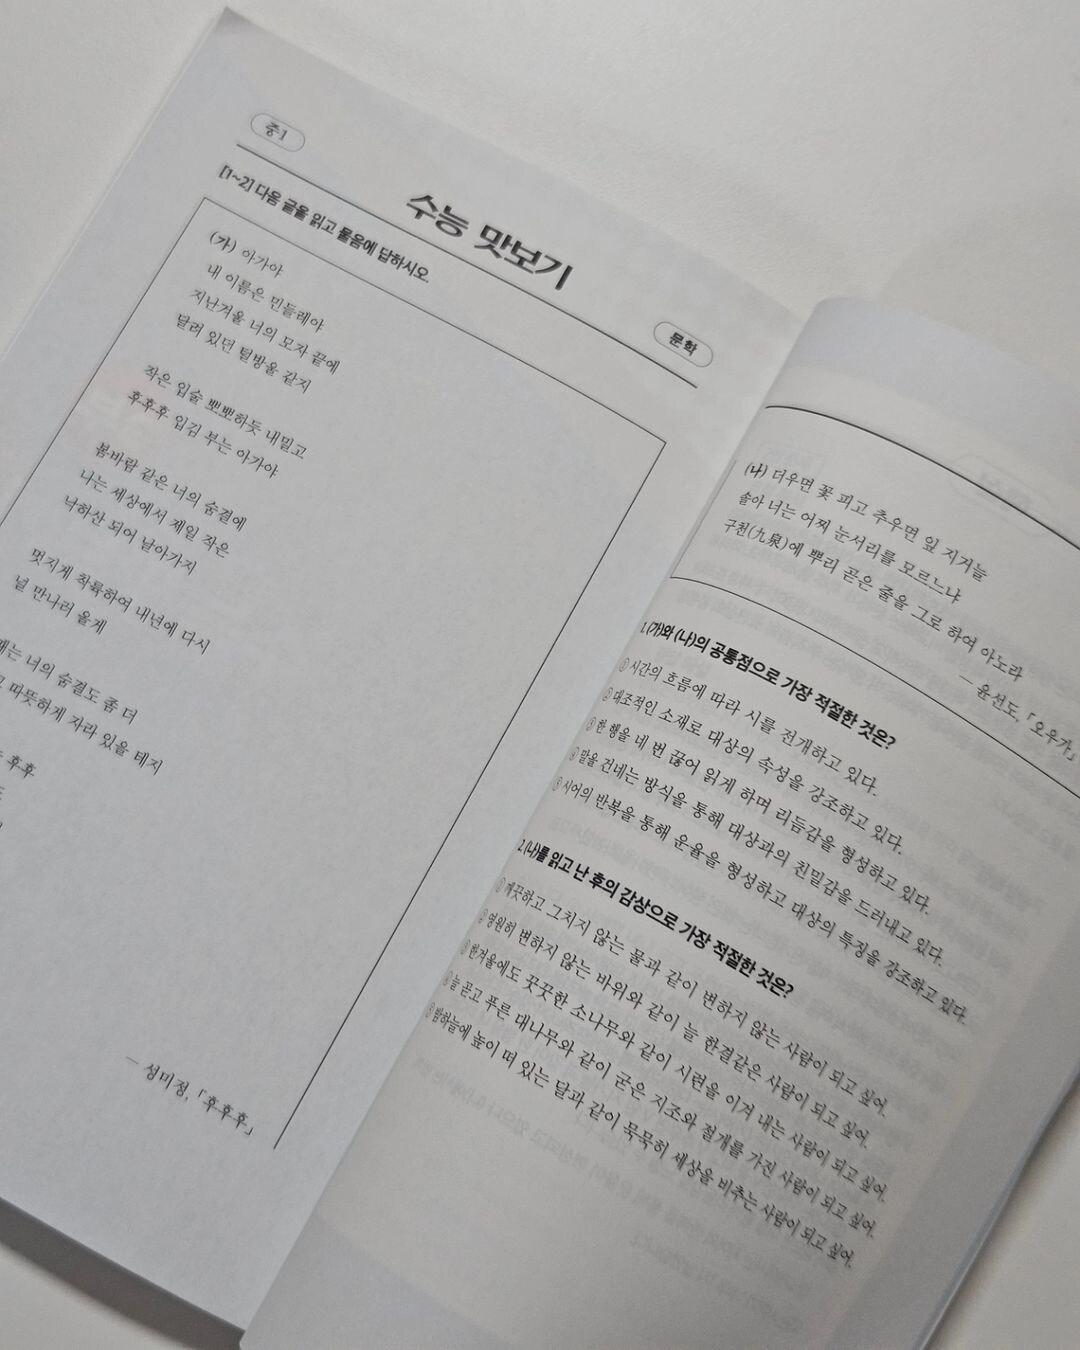 중1
수능 맛보기
문학
[1~2] 다음 글을 읽고 물음에 답하시오.
(가) 아가야
내 이름은 민들레야
지난겨울 너의 모자 끝에
달려 있던 털방울 같지
작은 입술 뽀뽀하듯 내밀고
후후후 입김 부는 아가야
봄바람 같은 너의 숨결에
나는 세상에서 제일 작은
낙하산 되어 날아가지
멋지게 착륙하여 내년에 다시
널 만나러 올게
너의 숨결도 좀 더
따뜻하게 자라 있을 테지
후후
― 섬미정, 「후후후」
(나) 더우면 꽃 피고 추우면 잎 지거늘
솔아 너는 어찌 눈서리를 모르느냐
구천(九泉)에 뿌리 곧은 줄을 그로 하여 아노라
― 윤선도, 「오우가」
1. (가)와 (나)의 공통점으로 가장 적절한 것은?
① 시간의 흐름에 따라 시를 전개하고 있다.
② 대조적인 소재로 대상의 속성을 강조하고 있다.
③ 한 행을 네 번 끊어 읽게 하며 리듬감을 형성하고 있다.
④ 말을 건네는 방식을 통해 대상과의 친밀감을 드러내고 있다.
⑤ 시어의 반복을 통해 운율을 형성하고 대상의 특징을 강조하고 있다.
2. (나)를 읽고 난 후의 감상으로 가장 적절한 것은?
① 깨끗하고 그치지 않는 물과 같이 변하지 않는 사람이 되고 싶어.
② 영원히 변하지 않는 바위와 같이 늘 한결같은 사람이 되고 싶어.
③ 한겨울에도 꿋꿋한 소나무와 같이 시련을 이겨 내는 사람이 되고 싶어.
④ 늘 곧고 푸른 대나무와 같이 굳은 지조와 절개를 가진 사람이 되고 싶어.
⑤ 밤하늘에 높이 떠 있는 달과 같이 묵묵히 세상을 비추는 사람이 되고 싶어.